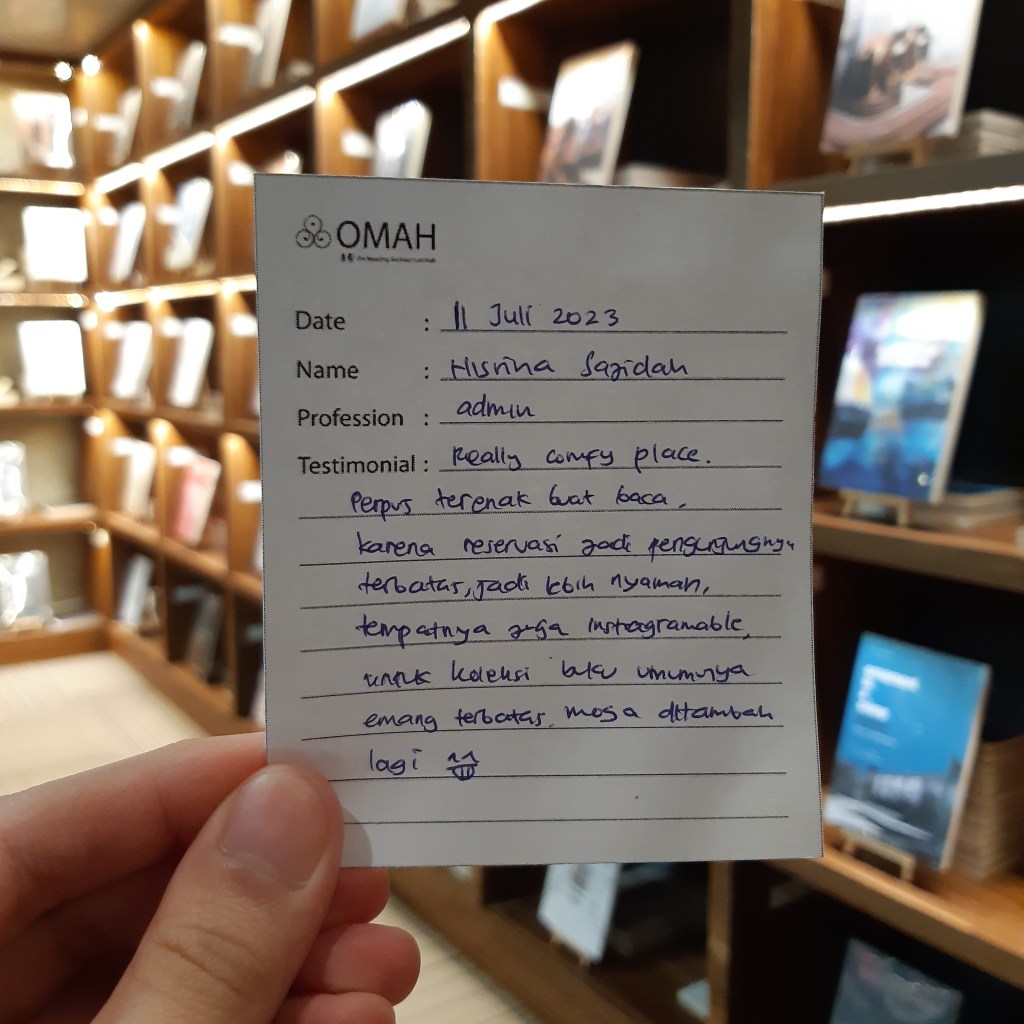 OMAH
Date : 11 Juli 2023
Name : Hisrina Sazidah
Profession : admin
Testimonial : Really comfy place.
Perpus terenak buat baca,
karena reservasi jadi pengunjungnya
terbatas, jadi lebih nyaman,
tempatnya juga instagramable,
untuk koleksi buku umumnya
emang terbatas, moga ditambah
lagi